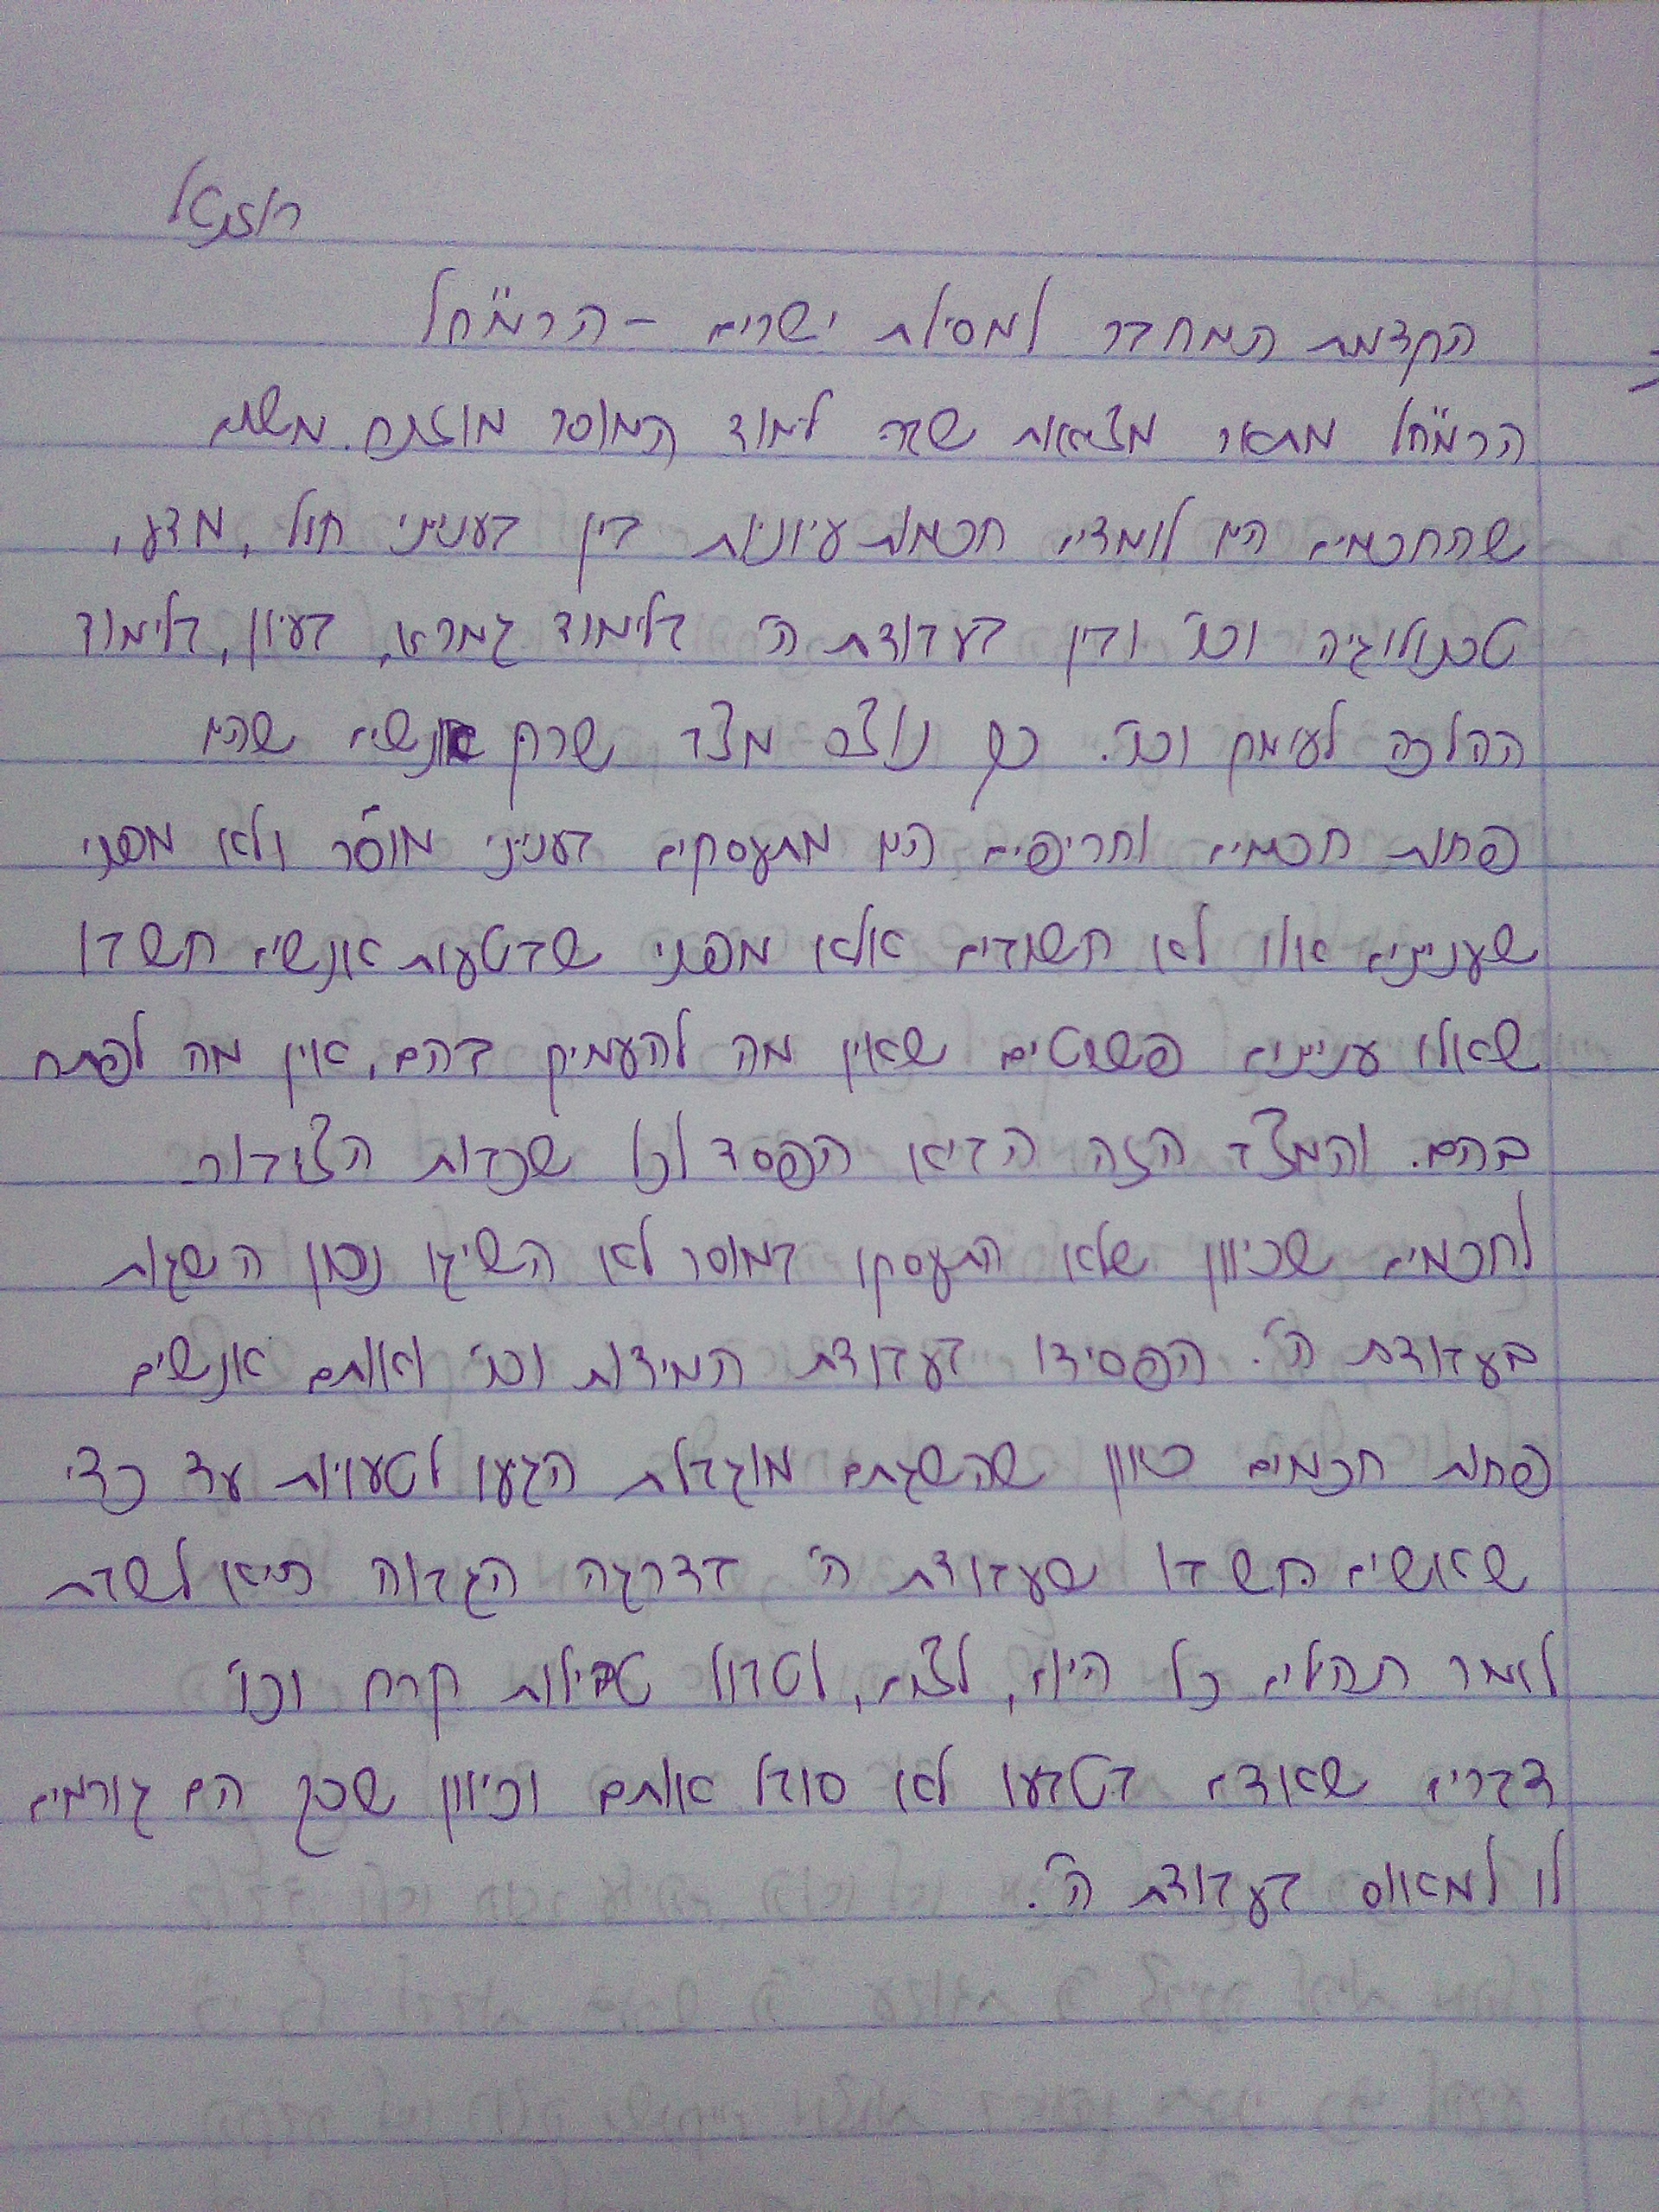 הקדמת המחבר למסילת ישרים - הרמ"חל
הרמ"חל מתאר מציאות שבה לימוד המוסר מוזנח. משום
שהחכמים הם לומדים חכמות עיוניות בין בענייני חול, מדע,
טכנולוגיה וכו' ובין בעבודת ה' בלימוד גמרא, בעיון, בלימוד
ההלכה לעומק וכו'. כך נוצר מצב שרק אנשים שהם
פחות חכמים וחריפים הם מתעסקים בענייני מוסר ולא מפני
שעניינים אלו לא חשובים אלא מפני שבטעות אנשים חשבו
שאלו עניינים פשוטים שאין מה להעמיק בהם, אין מה לפתח
בהם. והמצב הזה הביא הפסד לכל שכבות הציבור.
לחכמים שכיוון שלא התעסקו במוסר לא השיגו נכון השגות
בעבודת ה'. הפסידו בעבודת המידות וכו' ואותם אנשים
פחות חכמים כיוון שהשגתם מוגבלת הגיעו לטעויות עד כדי
שאנשים חשבו שעבודת ה' בדרגה הגבוה היא לשבת
לומר תהילים כל היום, לצום, לטבול טבילות קרח וכו'
דברים שאודם בטבעו לא סובל אותם וכיוון שכך הם גורמים
לו למאוס בעבודת ה'.